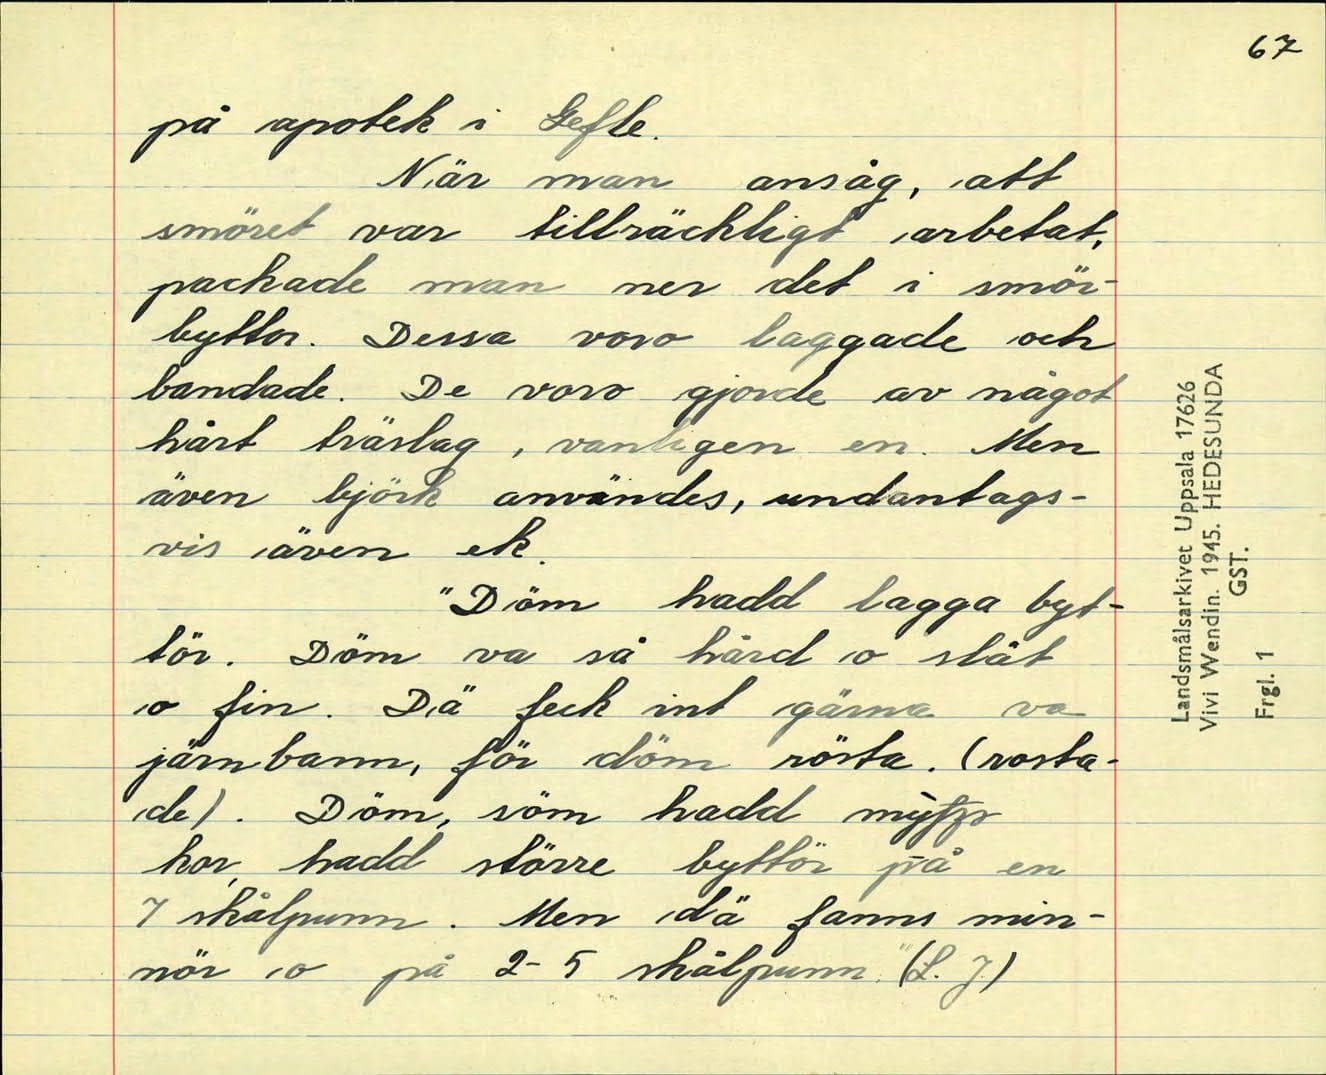 67
på apotek i Gefle.
När man ansåg, att
smöret var tillräckligt arbetat,
packade man ner det i smör-
byttor. Dessa voro laggade och
bandade. De voro gjorde av något
hårt träslag, vanligen en. Men
även björk användes, undantags-
vis även ek.
"Döm hadd lagga byt-
tör. Döm va så hård o slät
o fin. Dä feck int gärna va
järnbann, för döm rösta. (rosta-
de). Döm, söm hadd
kor, hadd större byttör på en
7 skålpunn. Men dä fanns min-
nör o på 2-5 skålpunn." (L. J.)
Landsmålsarkivet Uppsala 17626
Vivi Wendin. 1945. HEDESUNDA
GST.
Frgl. 1